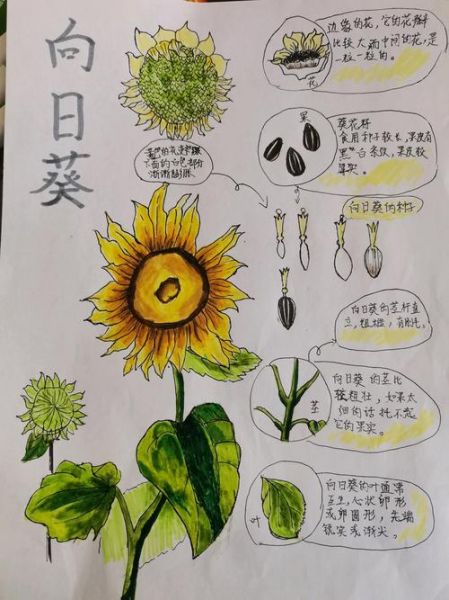 向日葵
边缘的花,它的花瓣
比较大而中间的花,是
一粒一粒的。
花
黑
葵花籽
食用种子较长,果皮有
黑白条纹,果皮较
厚实。
下面的白色部分
渐渐膨胀
向日葵的种子
向日葵的茎秆直
立,粗雄,有刚毛。
向日葵的茎比
较粗壮,如果太
细的话托不起
它的果实。
茎
向日葵的叶通常
互生,心状卵形
或卵圆形,先端
锐突或渐尖。
叶